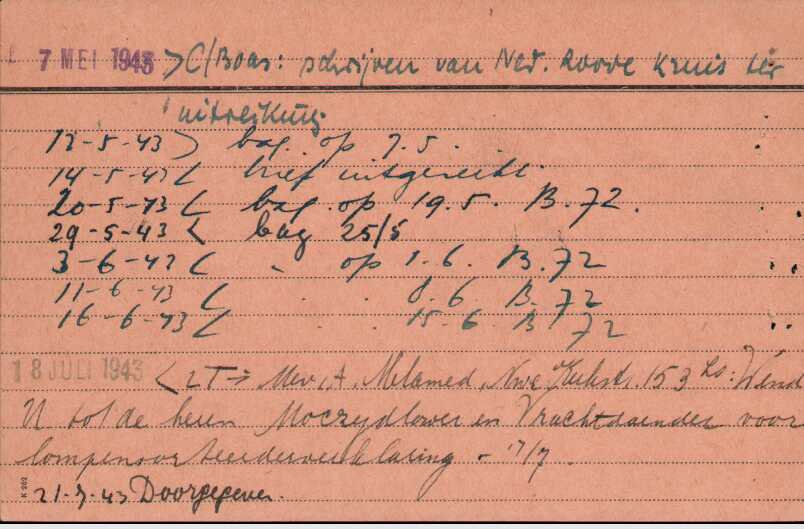 7 MEI 1943 > C/Boas: schrijven van Ned. Roode Kruis ter
uitreiking.
12-5-43 > bag. op 7.5.
14-5-43 < brief uitgereikt.
20-5-43 < bag. op 19.5. B. 72.
29-5-43 < bag 25/5
3-6-43 < " op 1-6. B. 72
11-6-43 < . . 8.6. B. 72
16-6-43 < . . 15-6. B 72
18 JULI 1943 < LT → Mevr. A. Melamed, Nwe Kerkst. 153 hs: Wend
U tot de heren Moczydlower en Vrachtdoender voor
21-7-43 Doorgegeven.
K 202